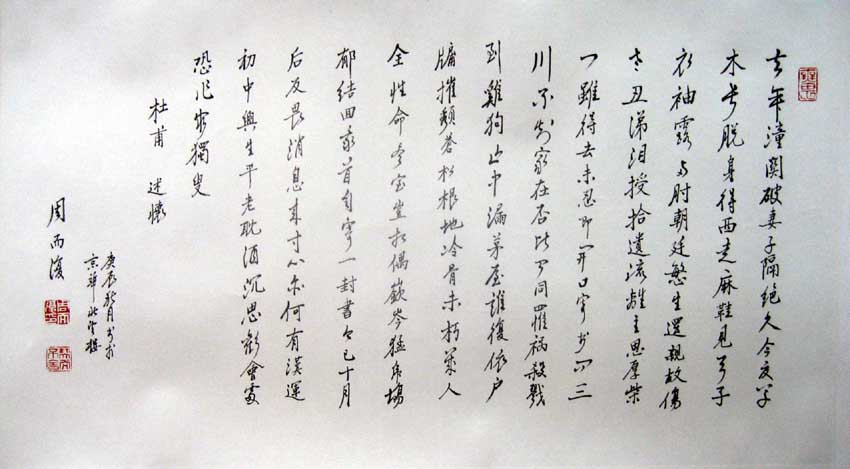 去年潼関破妻子隔絶久今夏草
木長脱身得西走麻鞋見天子
衣袖露两肘朝廷慜生還親故傷
老丑涕泪授拾遺流離主恩厚柴
门雖得去未忍即開口寄书问三
川不知家在否比闻同罹祸殺戮
到雞狗山中漏茅屋誰復依户
牖摧頽蒼松根地冷骨未朽幾人
全性命尽室豈相偶嶔岑猛虎場
郁結回我首自寄一封書今已十月
后反畏消息来寸心亦何有漢運
初中興生平老耽酒沉思歡會處
恐作窮獨叟
杜甫 述懷
庚辰秋月书於
京華
周而復